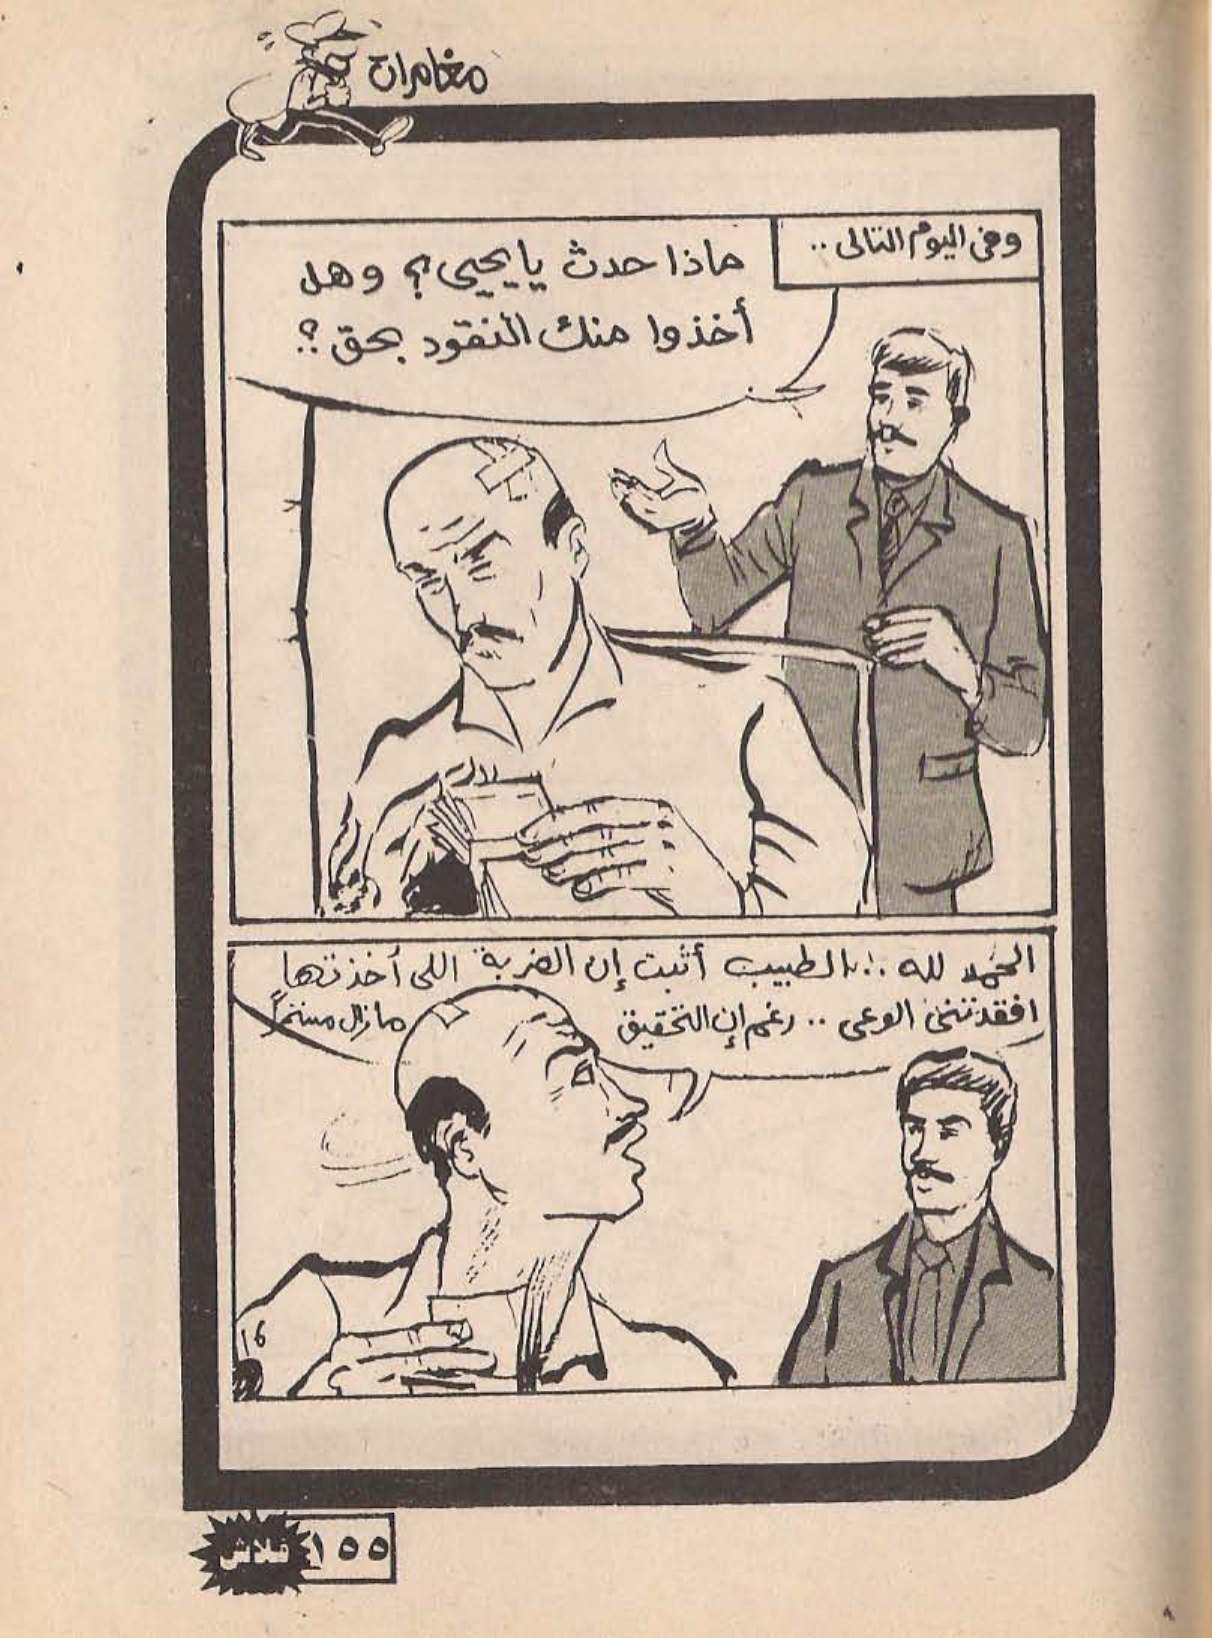 مغامرات
وفى اليوم التالى ..
ماذا حدث يا يحيى ؟ وهل
أخذوا منك النقود بحق ؟
الحمد لله .. الطبيب أثبت إن الضربة اللى أخذتها
افقدتنى الوعى .. رغم إن التحقيق مازال مستمراً
16
فلاش ١٥٥